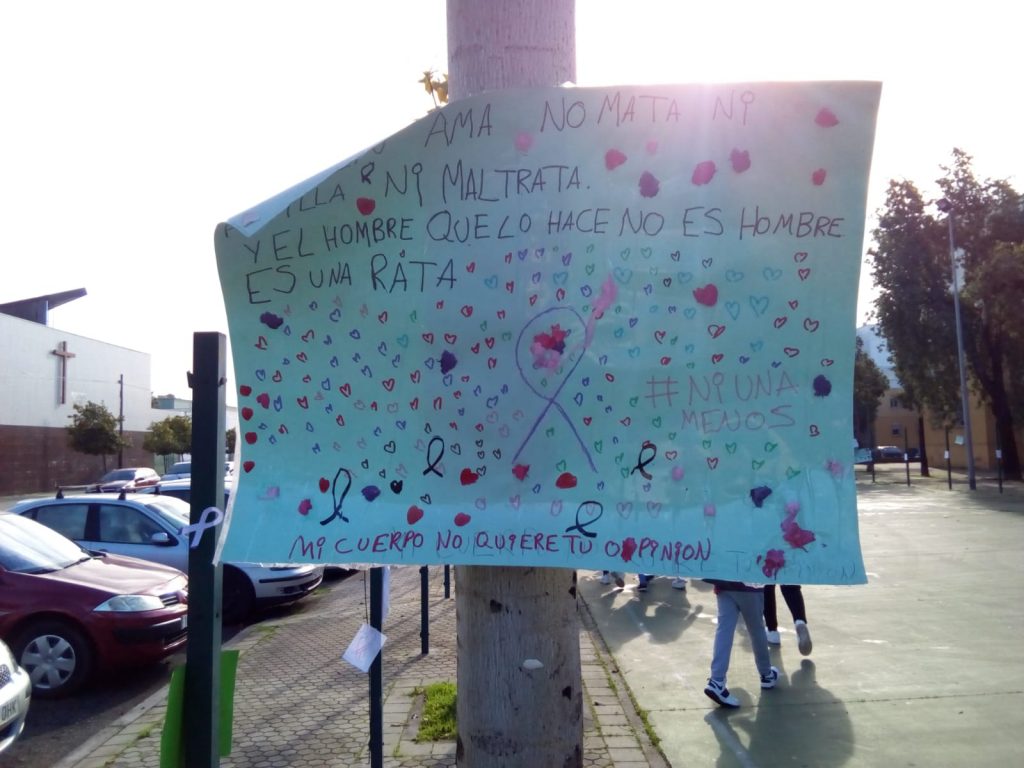 AMA NO MATA NI
NI MALTRATA.
Y EL HOMBRE QUE LO HACE NO ES HOMBRE
ES UNA RATA
#NI UNA
MENOS
MI CUERPO NO QUIERE TU OPINION